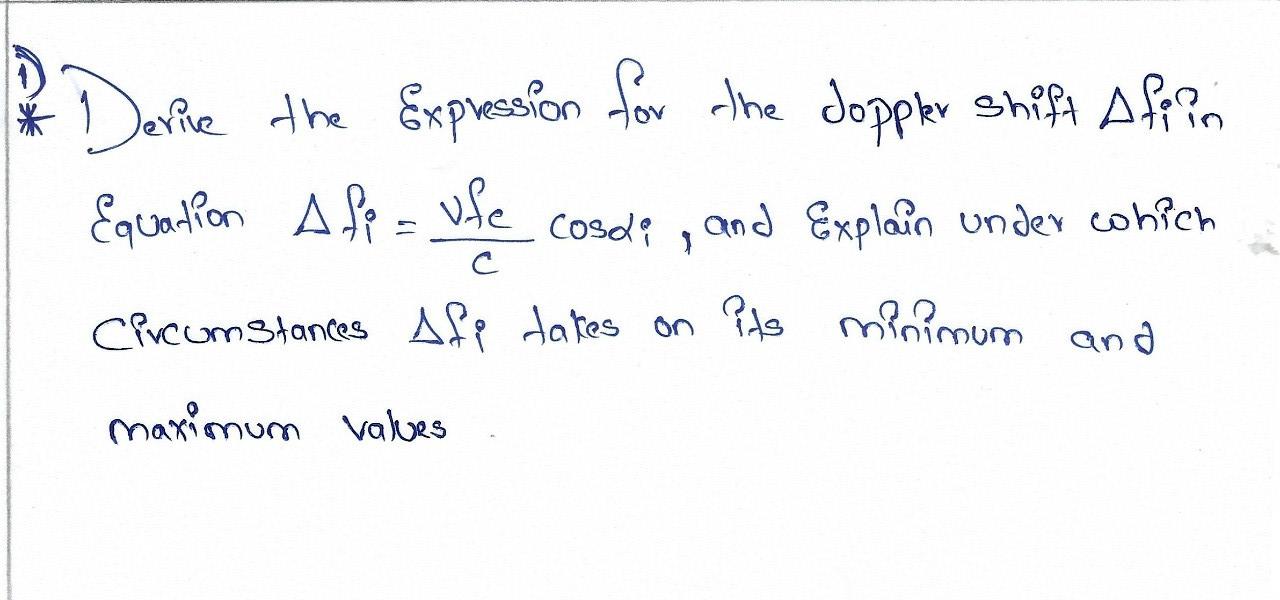 1)
* Derive the Expression for the doppler shift Δfi in
Equation Δfi = vfc/c cosαi, and Explain under which
Circumstances Δfi takes on its minimum and
maximum values.